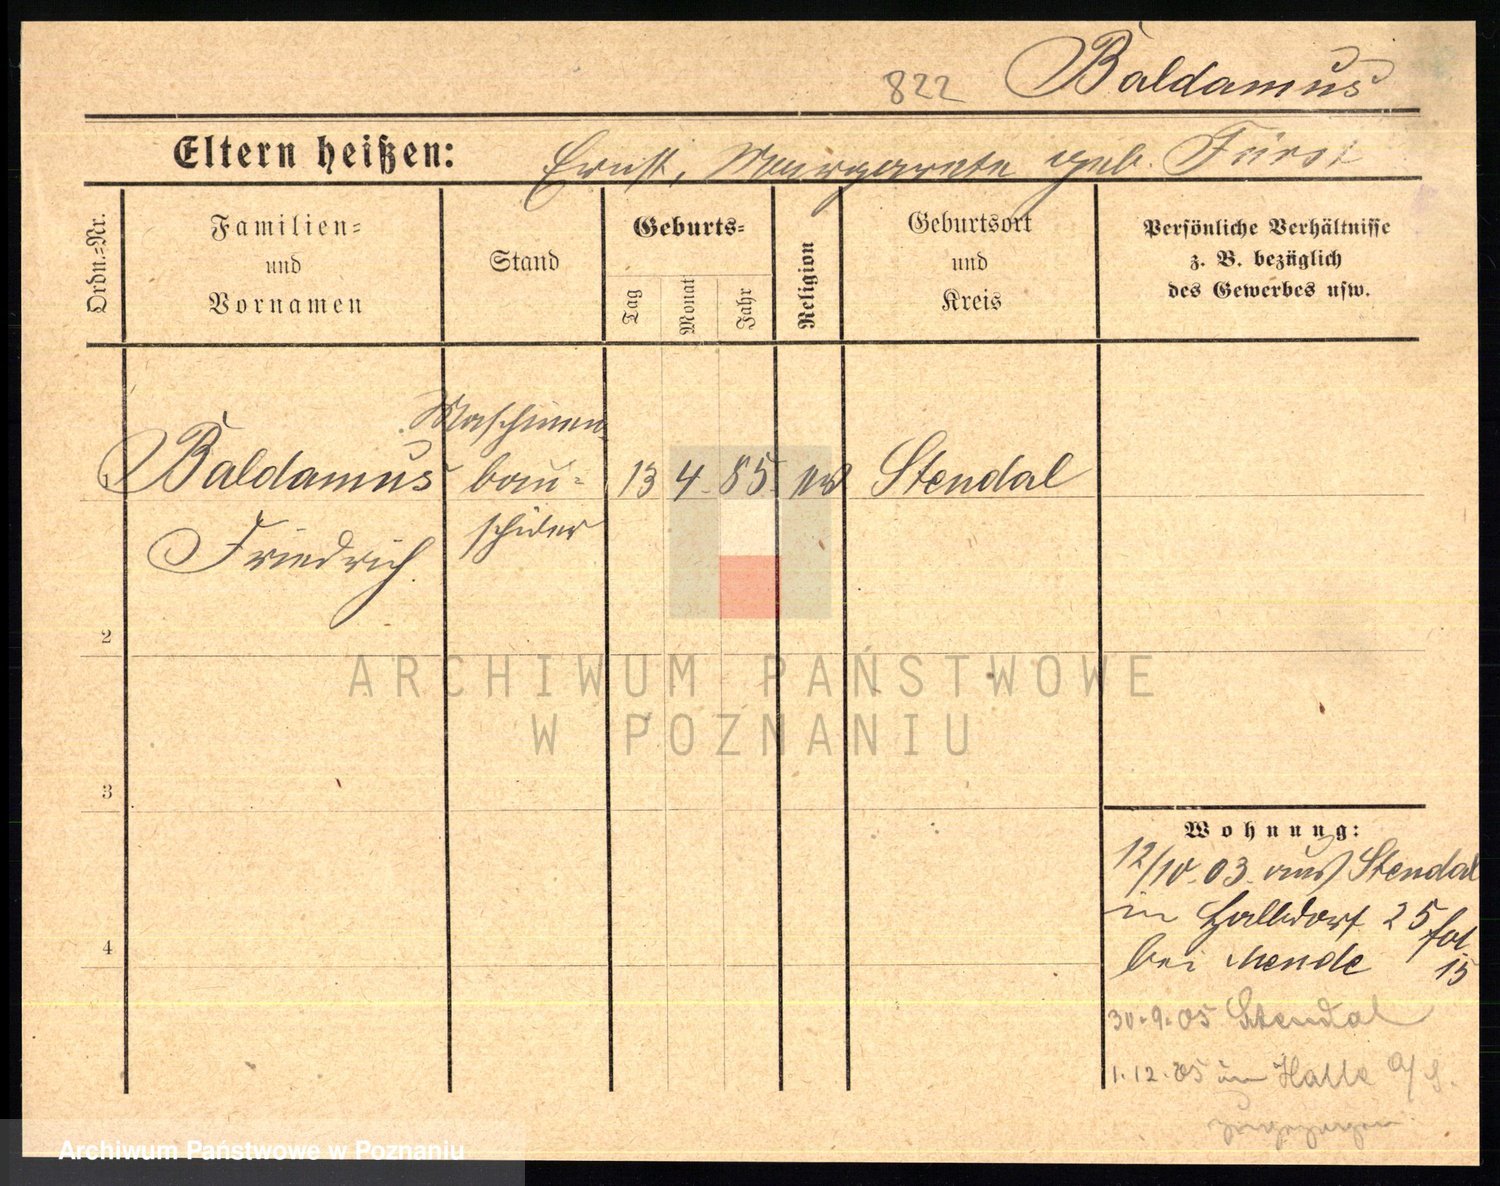 822 Baldamus
Eltern heißen: Ernst, Margarete geb. Fürst
Ordn.=Nr.
Familien=
und
Vornamen
Stand
Geburts=
Tag
Monat
Jahr
Religion
Geburtsort
und
Kreis
Persönliche Verhältnisse
z. B. bezüglich
des Gewerbes usw.
Maschinen
Baldamus bau= 13 4. 85. ev Stendal
Friedrich
2
ARCHIWUM PAŃSTWOWE
W POZNANIU
3
Wohnung:
12/10. 03. aus Stendal
in 25 fol
bei Mende 15
4
30.9.05 Stendal
1.12.05 in Halle a/S.
zugezogen.
Archiwum Państwowe w Poznaniu